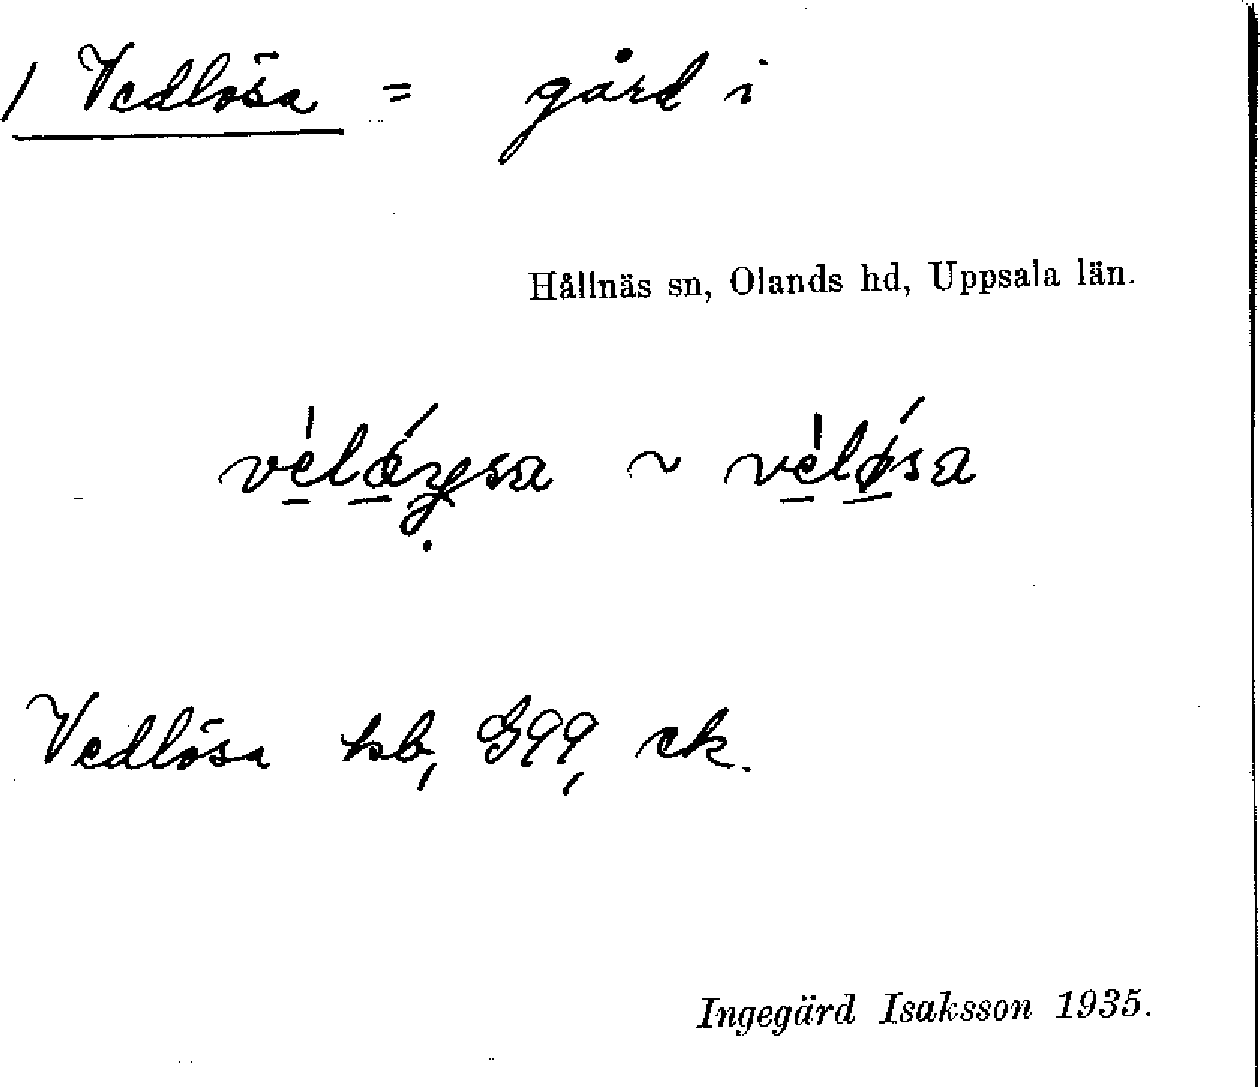 / Vedlösa = gård i
Hållnäs sn, Olands hd, Uppsala län.
~
Vedlösa kb, G99, ek.
Ingegärd Isaksson 1935.